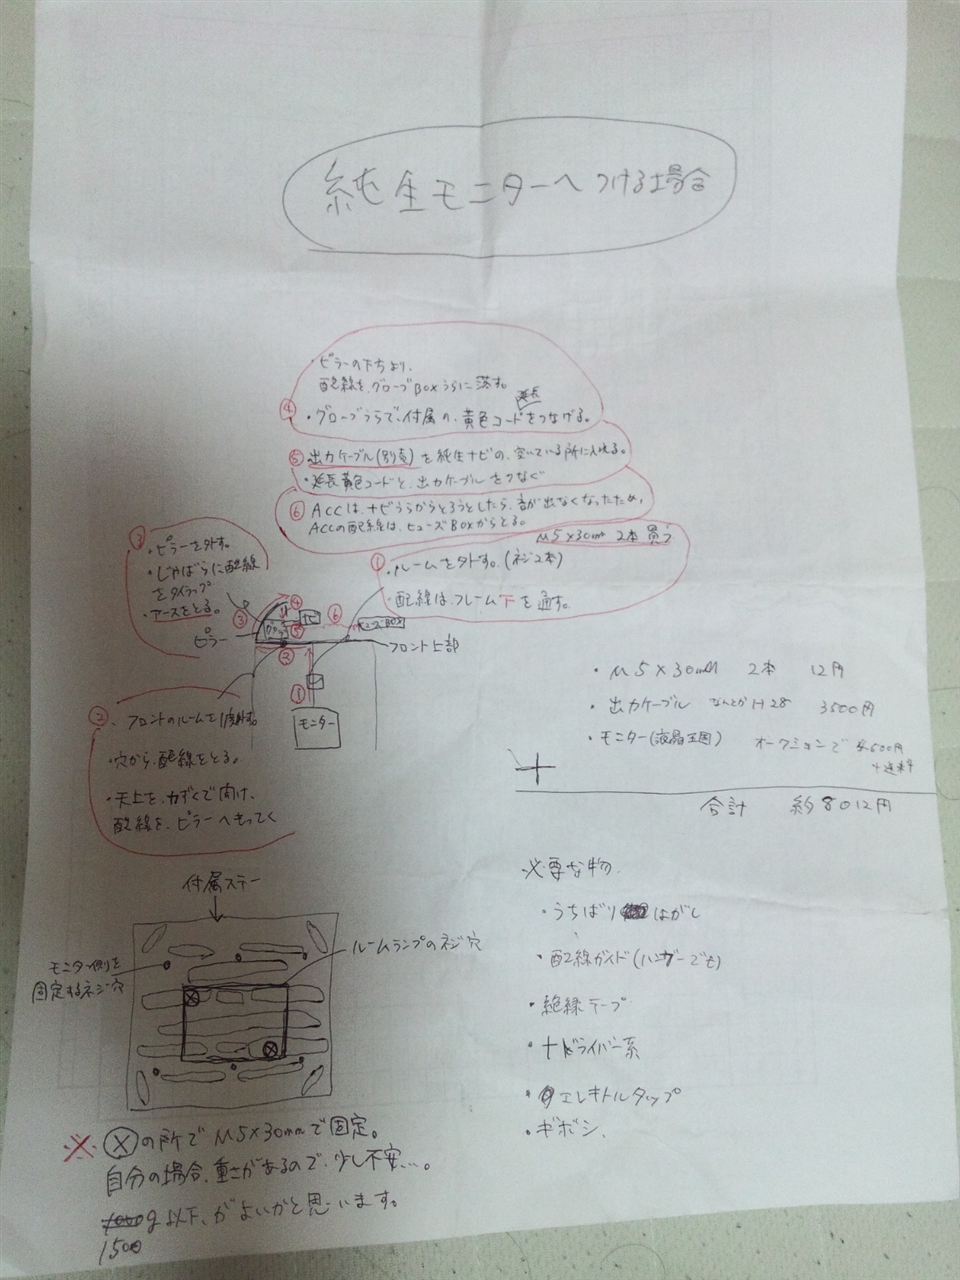 純生モニターへつける場合
・ピラーの下ちより、
配線を、グローブBOXうらに落す。
延長
④ ・グローブうらで、付属の、黄色コードをつなげる。
⑤ 出力ケーブル(別売)を純生ナビの、空いている所に入れる。
・延長黄色コードと、出力ケーブルをつなぐ
⑥ ACCは、ナビうらからとろうとしたら、音が出なくなったため、
ACCの配線は、ヒューズBOXからとる。
M5×30mm 2本買う
① ・ルームを外す。(ネジ2本)
・配線は、フレーム下を通す。
③ ・ピラーを外す。
・じゃばらに配線
をタイラップ
・アースをとる。
ピラー
③ ④ ⑤ ⑥
ナビ
ヒューズBOX
フロント上部
②
①
モニター
② 、フロントのルームを1度外す。
・穴から、配線をとる。
・天上を、力ずくで開け、
配線を、ピラーへもってく
・M5×30mm 2本 12円
・出力ケーブル なんとかH28 3500円
・モニター(液晶王国) オークションで 4500円
+送料
合計 約8012円
付属ステー
ルームランプのネジ穴
モニター側を
固定するネジ穴
必要な物
・うちばりはがし
・配線ガイド(ハンガーでも)
・絶縁テープ
・+ドライバー系
・エレキトルタップ
・ギボシ、
※ⓧの所でM5×30mmで固定。
自分の場合、重さがあるので、少し不安…。
g以下、がよいかと思います。
1500